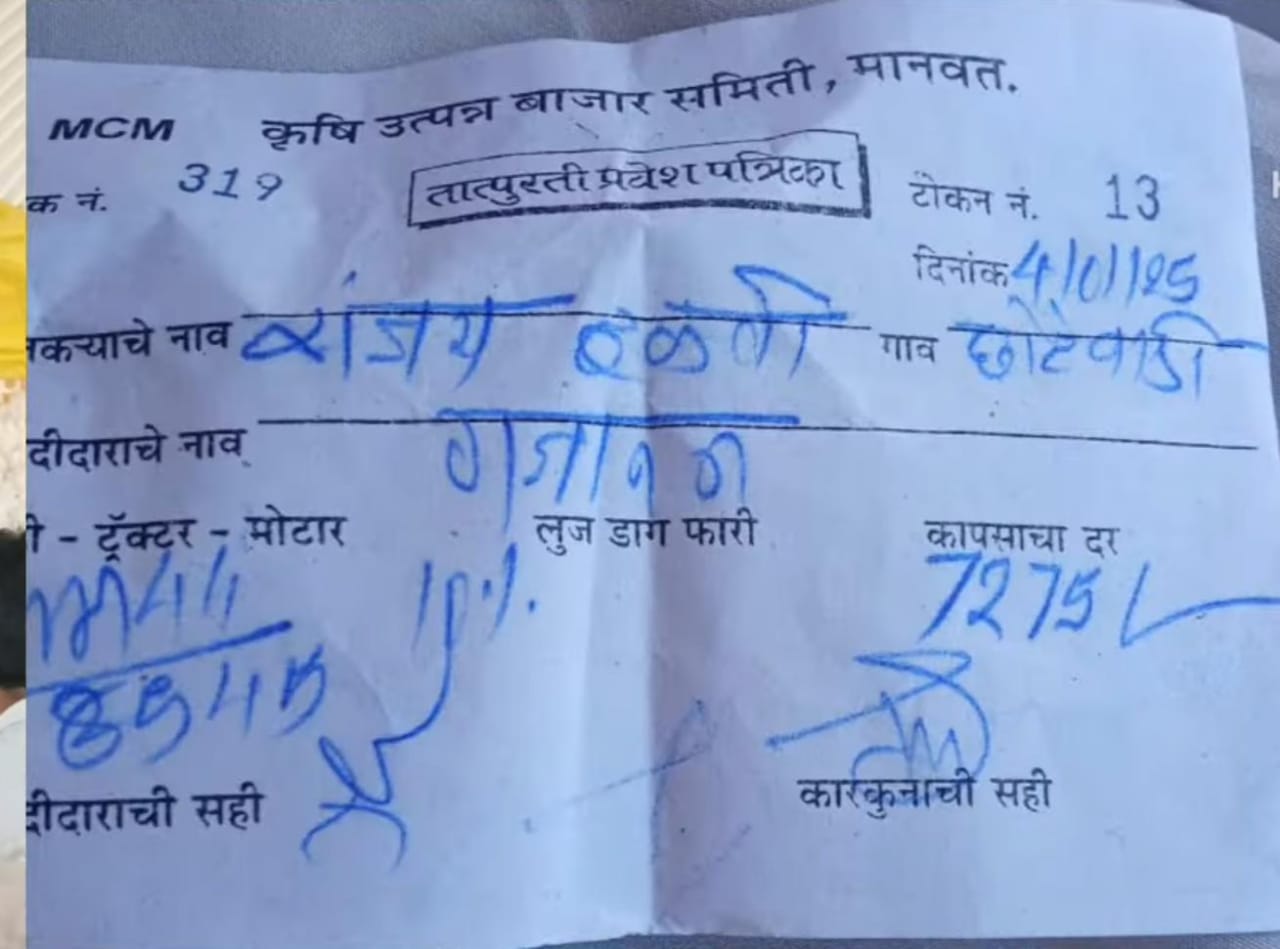 MCM कृषि उत्पन्न बाजार समिती, मानवत.
क नं. 319 तात्पुरती प्रवेश पत्रिका टोकन नं. 13
दिनांक 4/01/25
कऱ्याचे नाव संजय दळवी गाव
दीदाराचे नाव गजानन
ी - ट्रॅक्टर - मोटार लुज डाग फारी कापसाचा दर
7275
दीदाराची सही कारकुनाची सही